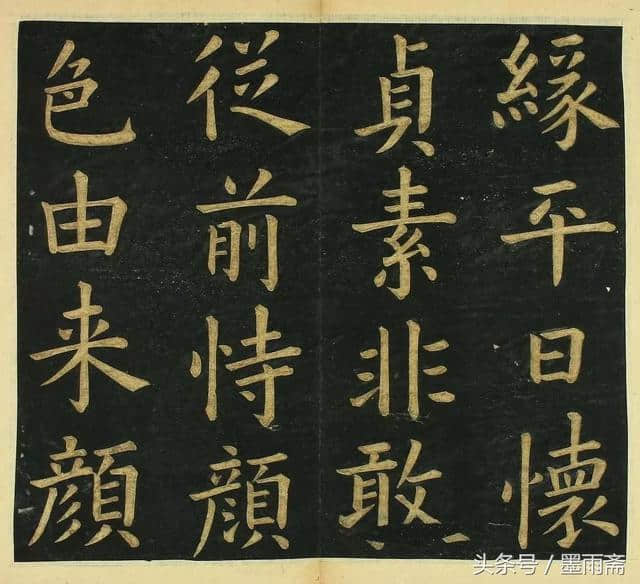 緣平日懷
貞素非敢
從前恃顔
色由来顔
头条号／墨雨斋